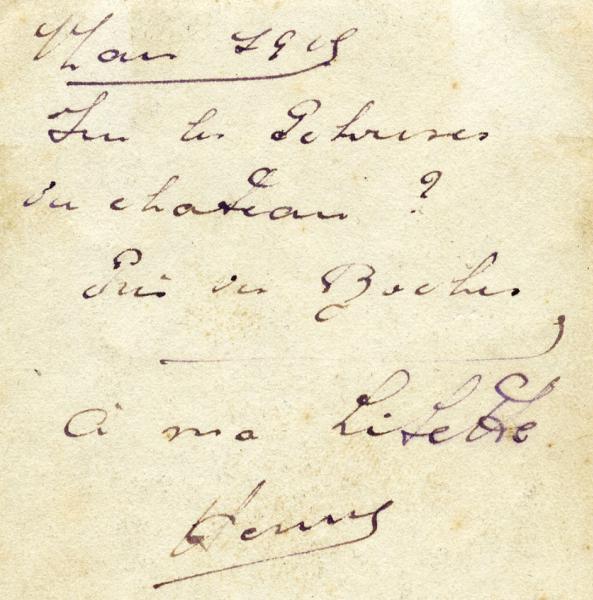 Mars 1915
Sur les Pelouses
du chateau ?
Près des Boches
à ma Lisette
Henry